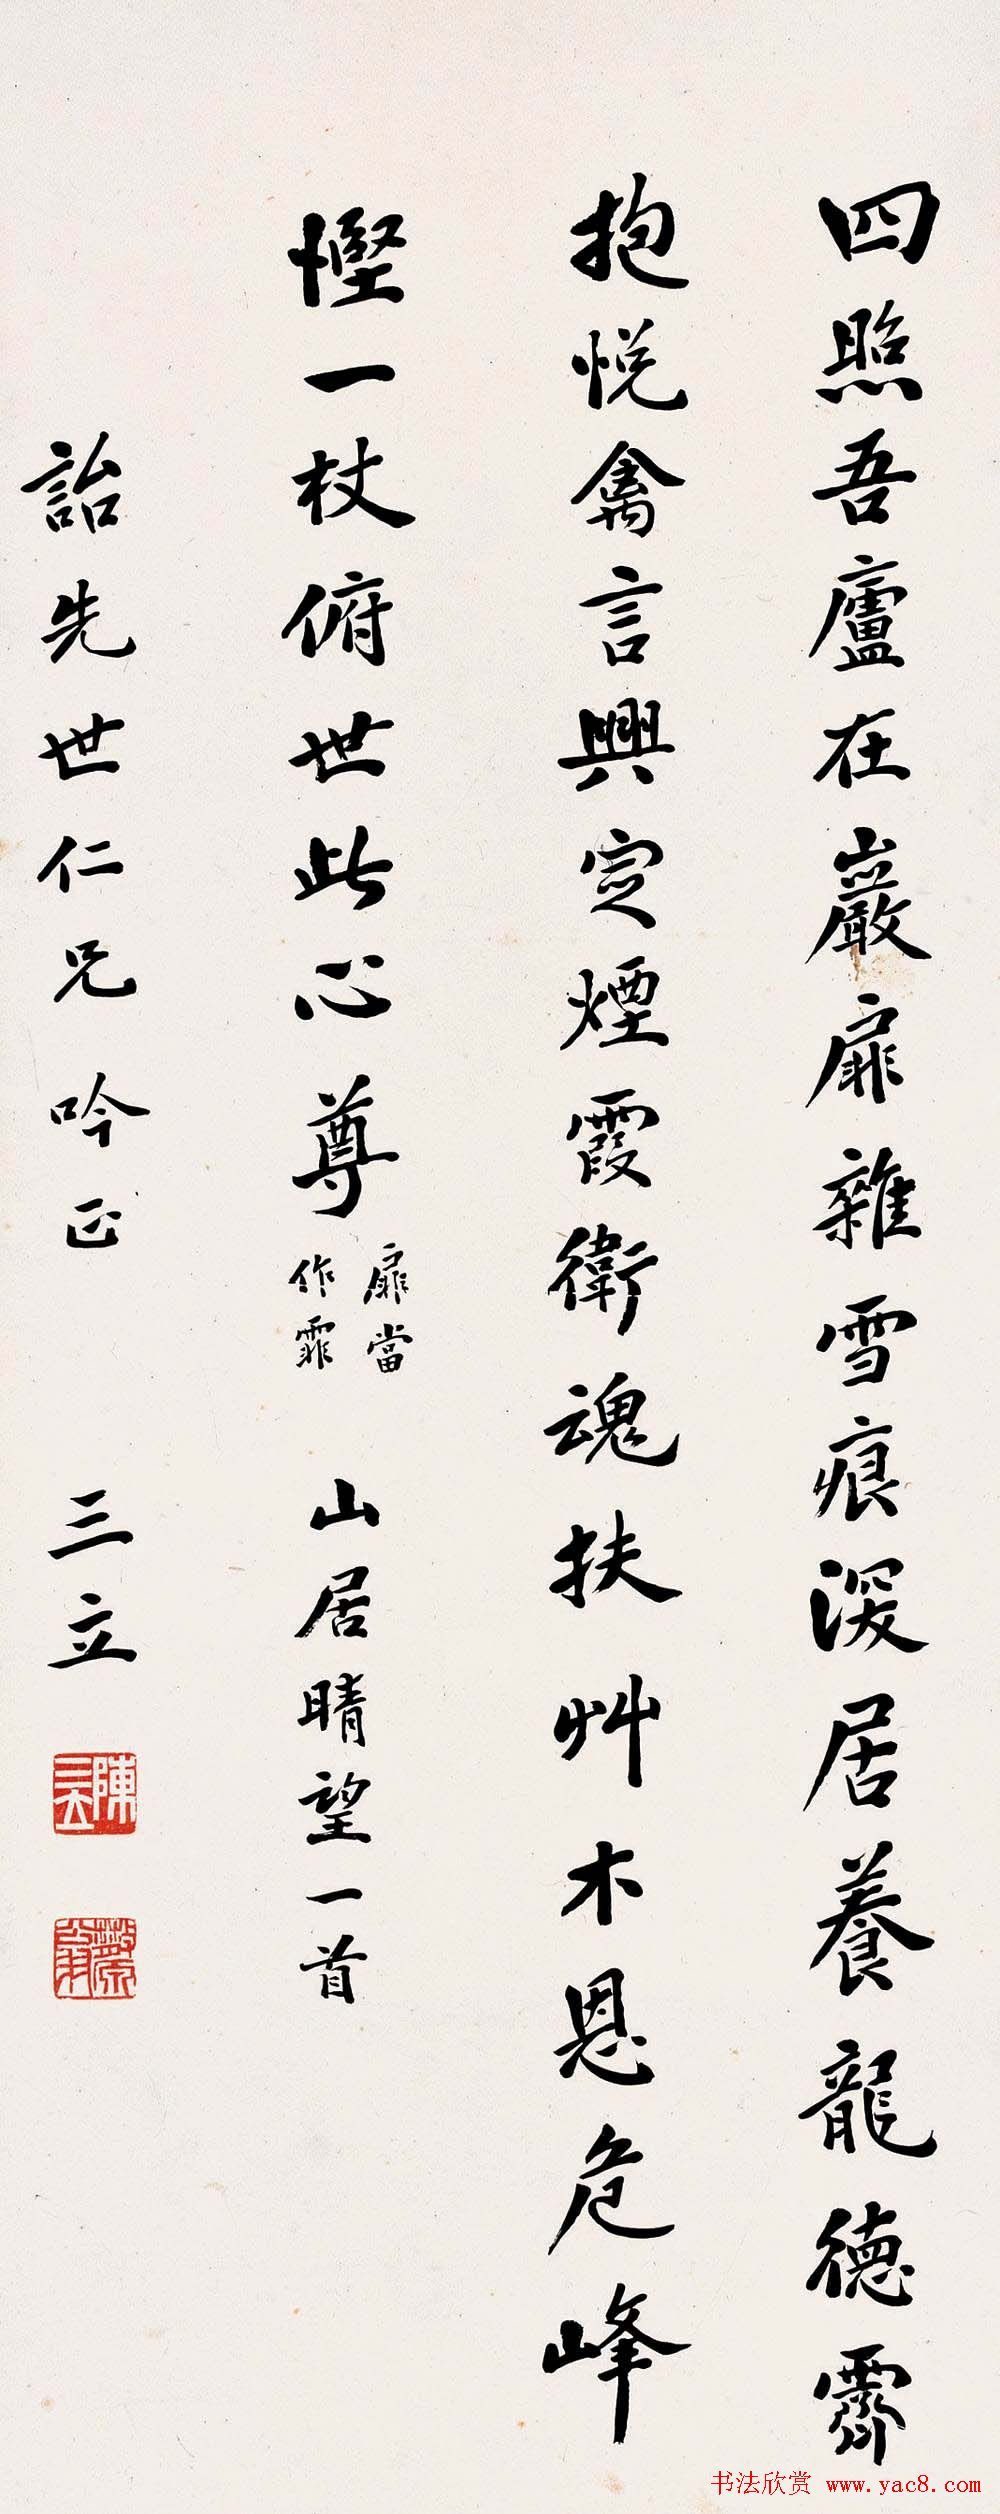 四照吾廬在巖扉雜雪痕深居養龍德霽
抱悅禽言興定煙霞衛魂扶艸木恩危峰
慳一杖俯世此心尊
扉當
作霏
山居晴望一首
詒先世仁兄吟正
三立
陳三立
書法欣賞 www.yac8.com